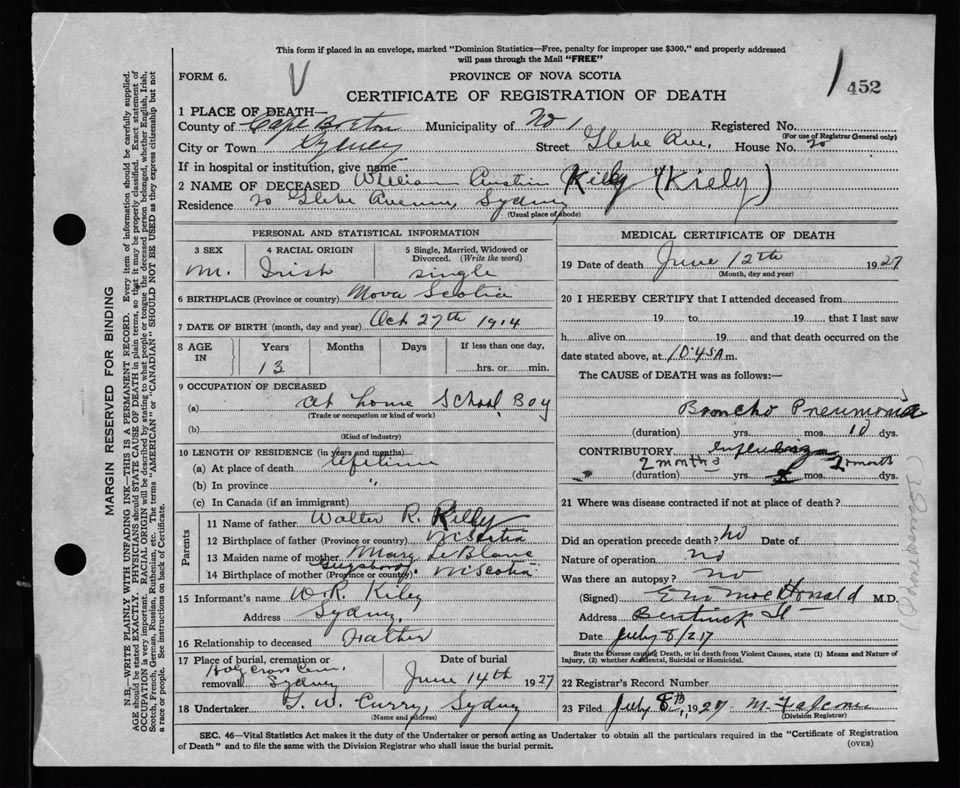 This form if placed in an envelope, marked "Dominion Statistics—Free, penalty for improper use $300," and properly addressed
will pass through the Mail "FREE"
FORM 6.
PROVINCE OF NOVA SCOTIA
452
CERTIFICATE OF REGISTRATION OF DEATH
1 PLACE OF DEATH—
County of Cape Breton Municipality of No 1 Registered No.
(For use of Registrar General only)
City or Town Sydney Street Glebe Ave. House No. 20
If in hospital or institution, give name
2 NAME OF DECEASED William Austin Kiley (Kiely)
Residence 20 Glebe Avenue, Sydney
(Usual place of abode)
PERSONAL AND STATISTICAL INFORMATION
3 SEX 4 RACIAL ORIGIN 5 Single, Married, Widowed or
Divorced. (Write the word)
M. Irish single
6 BIRTHPLACE (Province or country) Nova Scotia
7 DATE OF BIRTH (month, day and year) Oct 27th 1914
8 AGE IN Years Months Days If less than one day,
13 hrs. or min.
9 OCCUPATION OF DECEASED
(a) At home School Boy
(Trade or occupation or kind of work)
(b)
(Kind of industry)
10 LENGTH OF RESIDENCE (in years and months)
(a) At place of death lifetime
(b) In province "
(c) In Canada (if an immigrant)
Parents
11 Name of father Walter R. Kiley
12 Birthplace of father (Province or country) N Scotia
13 Maiden name of mother Mary LeBlanc
14 Birthplace of mother (Province or country) Guysboro N Scotia
15 Informant's name W. R. Kiley
Address Sydney
16 Relationship to deceased Father
17 Place of burial, cremation or removal Holy Cross Cem. Sydney
Date of burial June 14th 1927
18 Undertaker T. W. Curry, Sydney
(Name and address)
MEDICAL CERTIFICATE OF DEATH
19 Date of death June 12th 1927
(Month, day and year)
20 I HEREBY CERTIFY that I attended deceased from
19 to 19 that I last saw
h alive on 19 and that death occurred on the
date stated above, at 10.45 A m.
The CAUSE OF DEATH was as follows:—
Broncho Pneumonia
(duration) yrs. mos. 10 dys.
CONTRIBUTORY Influenza
2 months 2 month
(duration) yrs. mos. dys.
21 Where was disease contracted if not at place of death?
Did an operation precede death? No Date of
Nature of operation no
Was there an autopsy? no
(Signed) MacDonald M.D.
Address Bentinck St
Date July 8/27
State the Disease causing Death, or in death from Violent Causes, state (1) Means and Nature of
Injury, (2) whether Accidental, Suicidal or Homicidal.
22 Registrar's Record Number
23 Filed July 8th, 1927 M.
(Division Registrar)
SEC. 46—Vital Statistics Act makes it the duty of the Undertaker or person acting as Undertaker to obtain all the particulars required in the "Certificate of Registration
of Death" and to file the same with the Division Registrar who shall issue the burial permit.
(OVER)
MARGIN RESERVED FOR BINDING
N.B.—WRITE PLAINLY WITH UNFADING INK—THIS IS A PERMANENT RECORD. Every item of information should be carefully supplied.
AGE should be stated EXACTLY. PHYSICIANS should STATE CAUSE OF DEATH in plain terms, so that it may be properly classified. Exact statement of
OCCUPATION is very important. RACIAL ORIGIN will be described by stating to what people or tongue the deceased person belonged, whether English, Irish,
Scotch, French, German, Russian, Ruthenian, etc. The terms "AMERICAN" or "CANADIAN" SHOULD NOT BE USED as they express citizenship but not
a race or people. See instructions on back of Certificate.